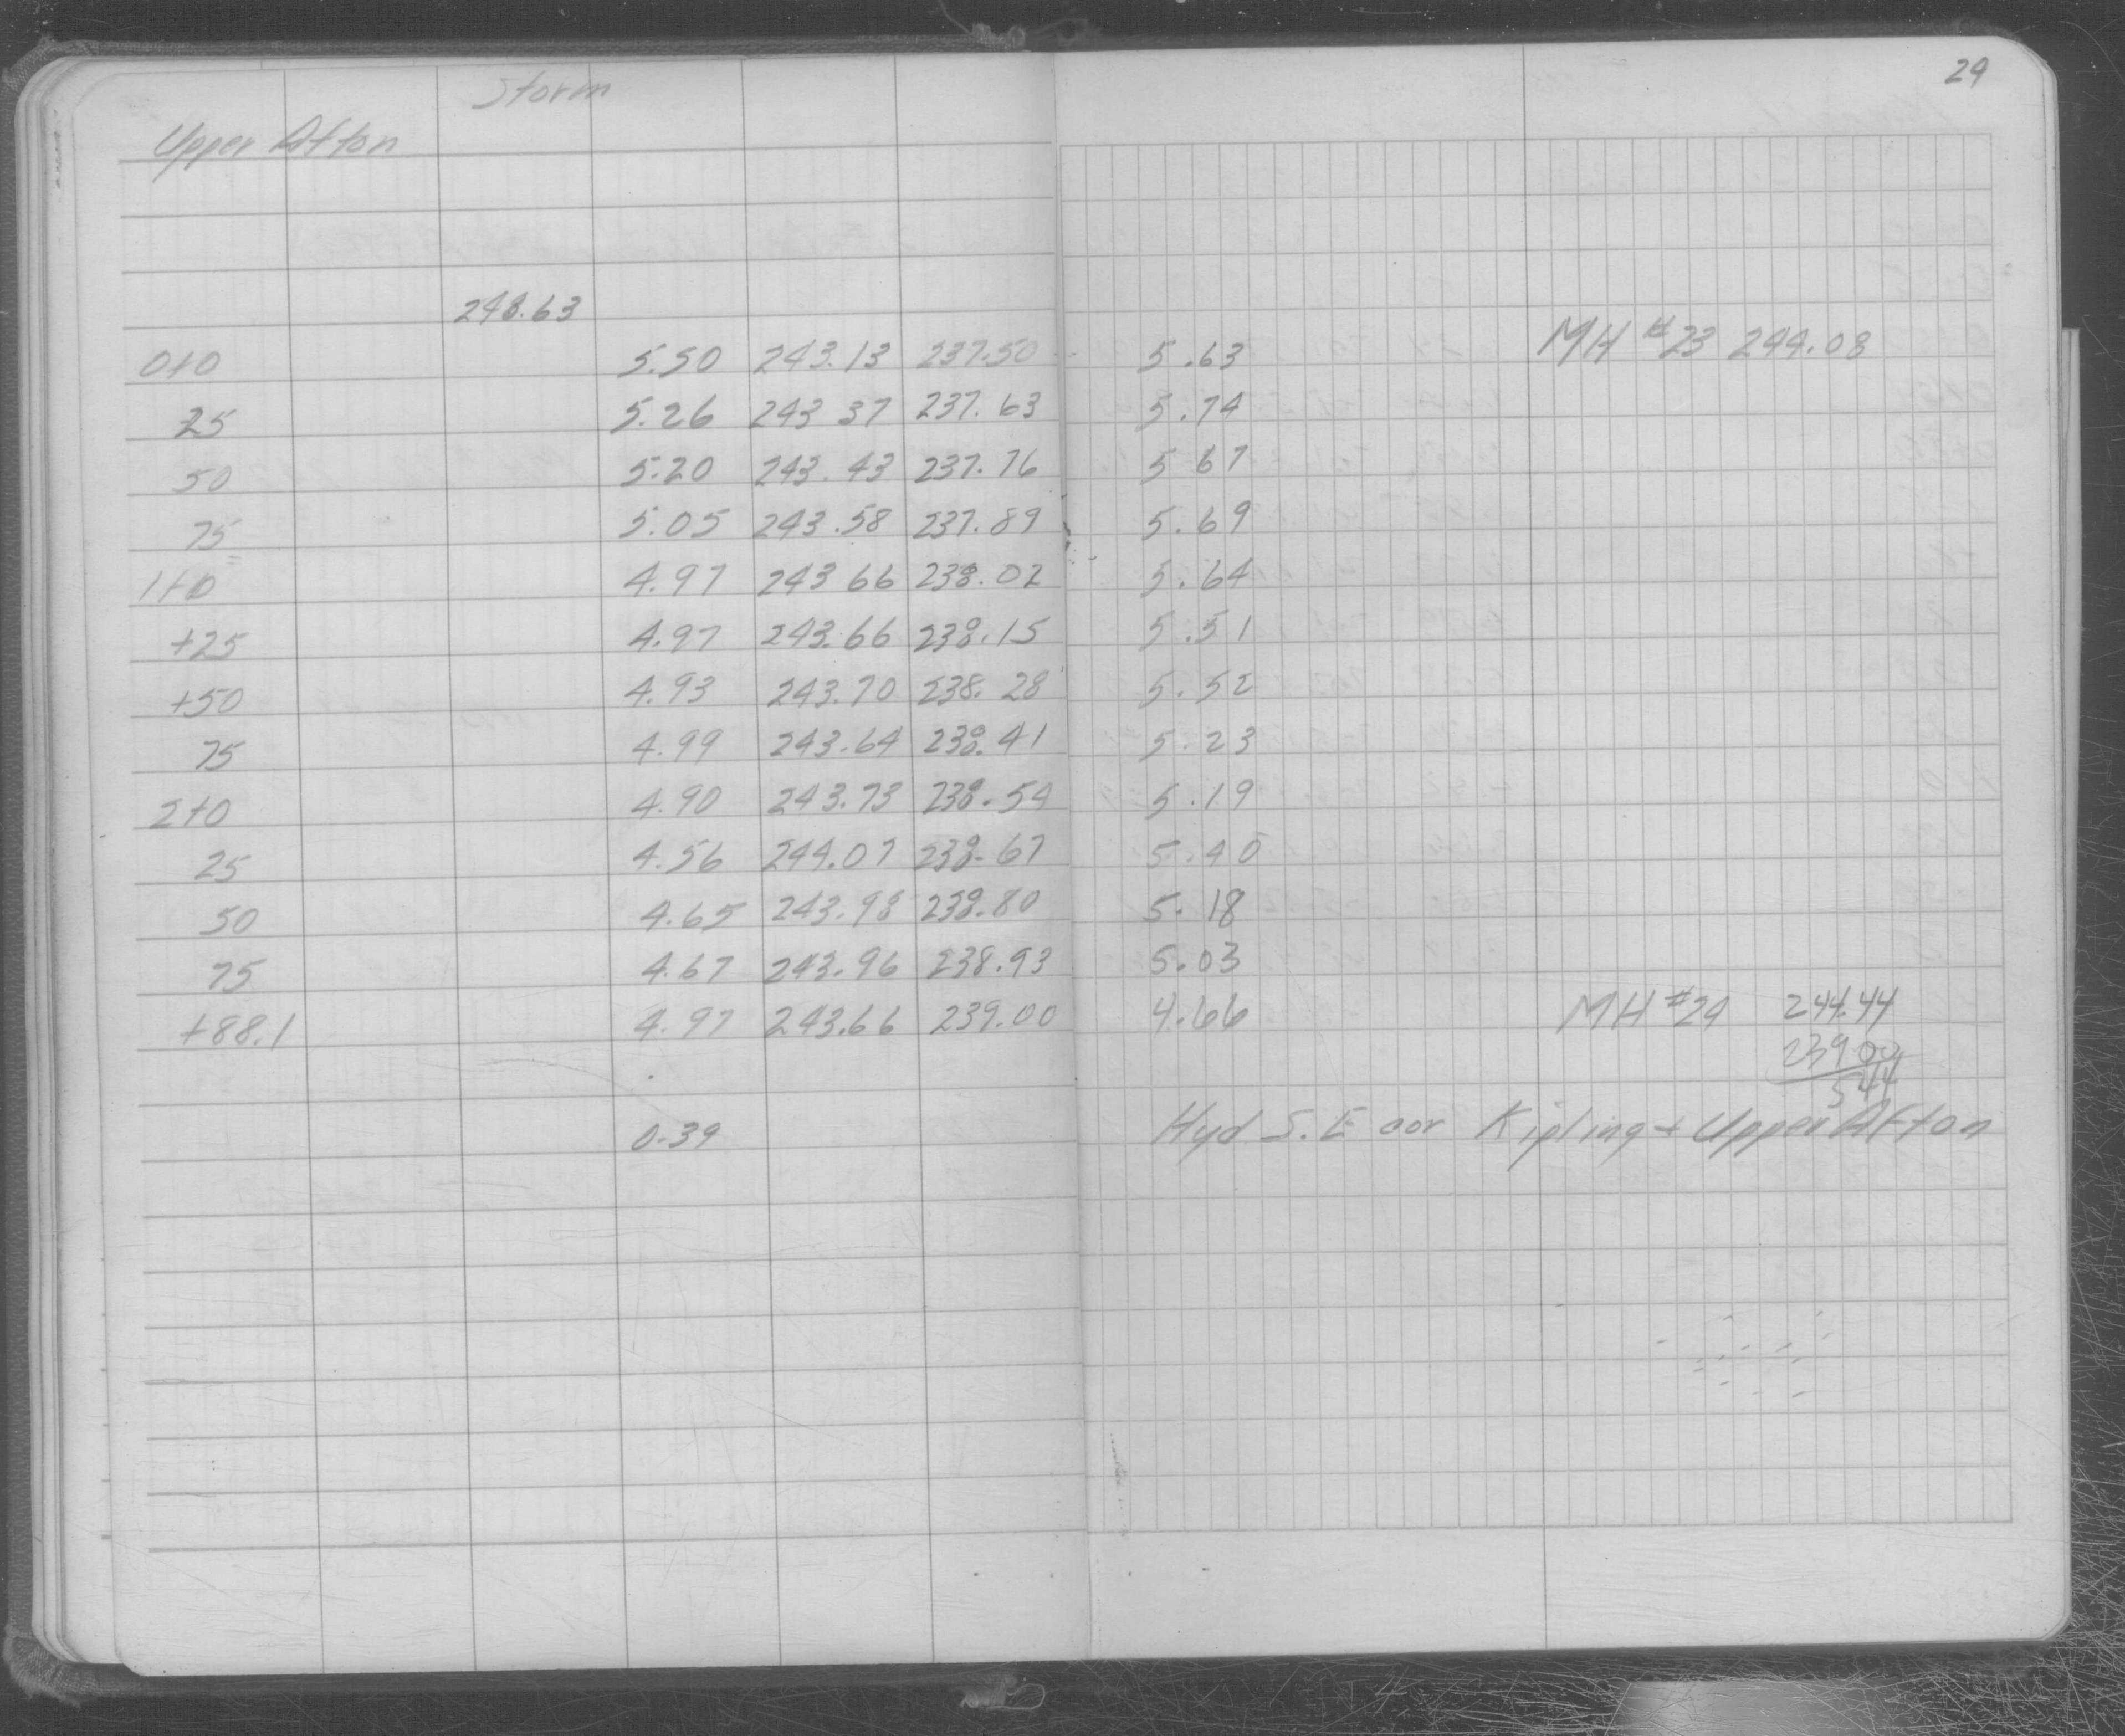 29
Storm
Upper Afton
248.63
0+0 5.50 243.13 237.50 5.63 MH #23 244.08
25 5.26 243 37 237.63 5.74
50 5.20 243.43 237.76 5 67
75 5.05 243.58 237.89 5.69
1+0 4.97 243 66 238.02 5.64
+25 4.97 243.66 238.15 5.51
+50 4.93 243.70 238.28 5.52
75 4.99 243.64 238.41 5.23
2+0 4.90 243.73 238.54 5.19
25 4.56 244.07 238.67 5.40
50 4.65 243.98 238.80 5.18
75 4.67 243.96 238.93 5.03
+88.1 4.97 243.66 239.00 4.66 MH #24 244.44
239 00
544
0.39 Hyd S.E cor Kipling + Upper Afton